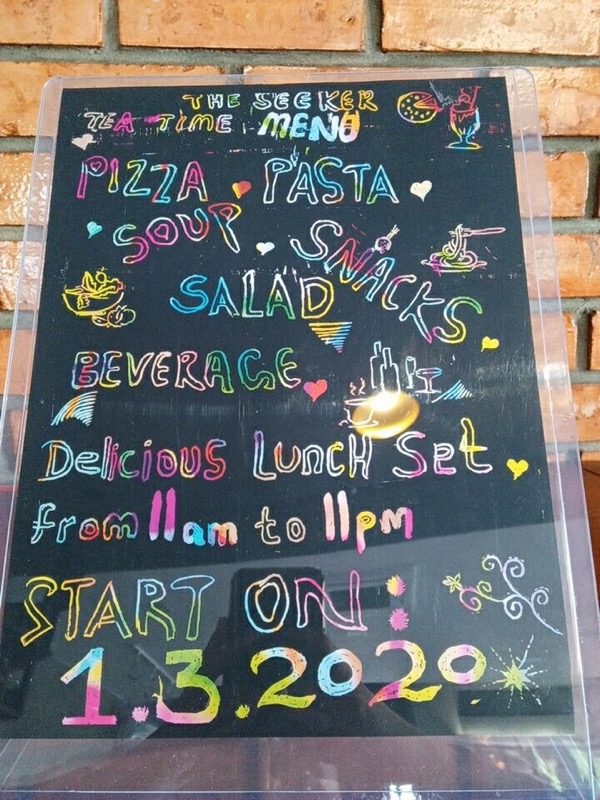 THE SEEKER
TEA TIME MENU
PIZZA PASTA
SOUP SNACKS
SALAD
BEVERAGE
Delicious LuncH Set
from 11am to 11pm
START ON:
1.3.2020